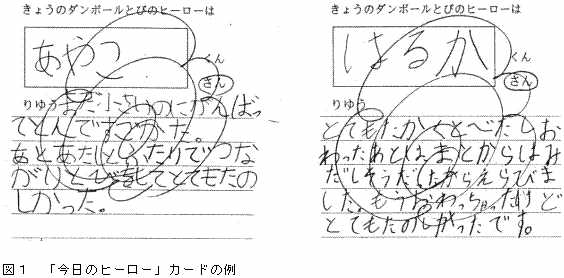 きょうのダンボールとびのヒーローは
あやこ
くん
さん
りゆう まだ小さいのにがんばっ
てとんですごかった。
あとあたしとふたりでつな
がりとびをしてとてもたの
しかった。
きょうのダンボールとびのヒーローは
はるか
くん
さん
りゆう
とてもたかくとべたしお
わったあとはまとからはみ
だしそうだったからえらびま
した。もうおわっちゃったけど
とてもたのしかったです。
図1 「今日のヒーロー」カードの例